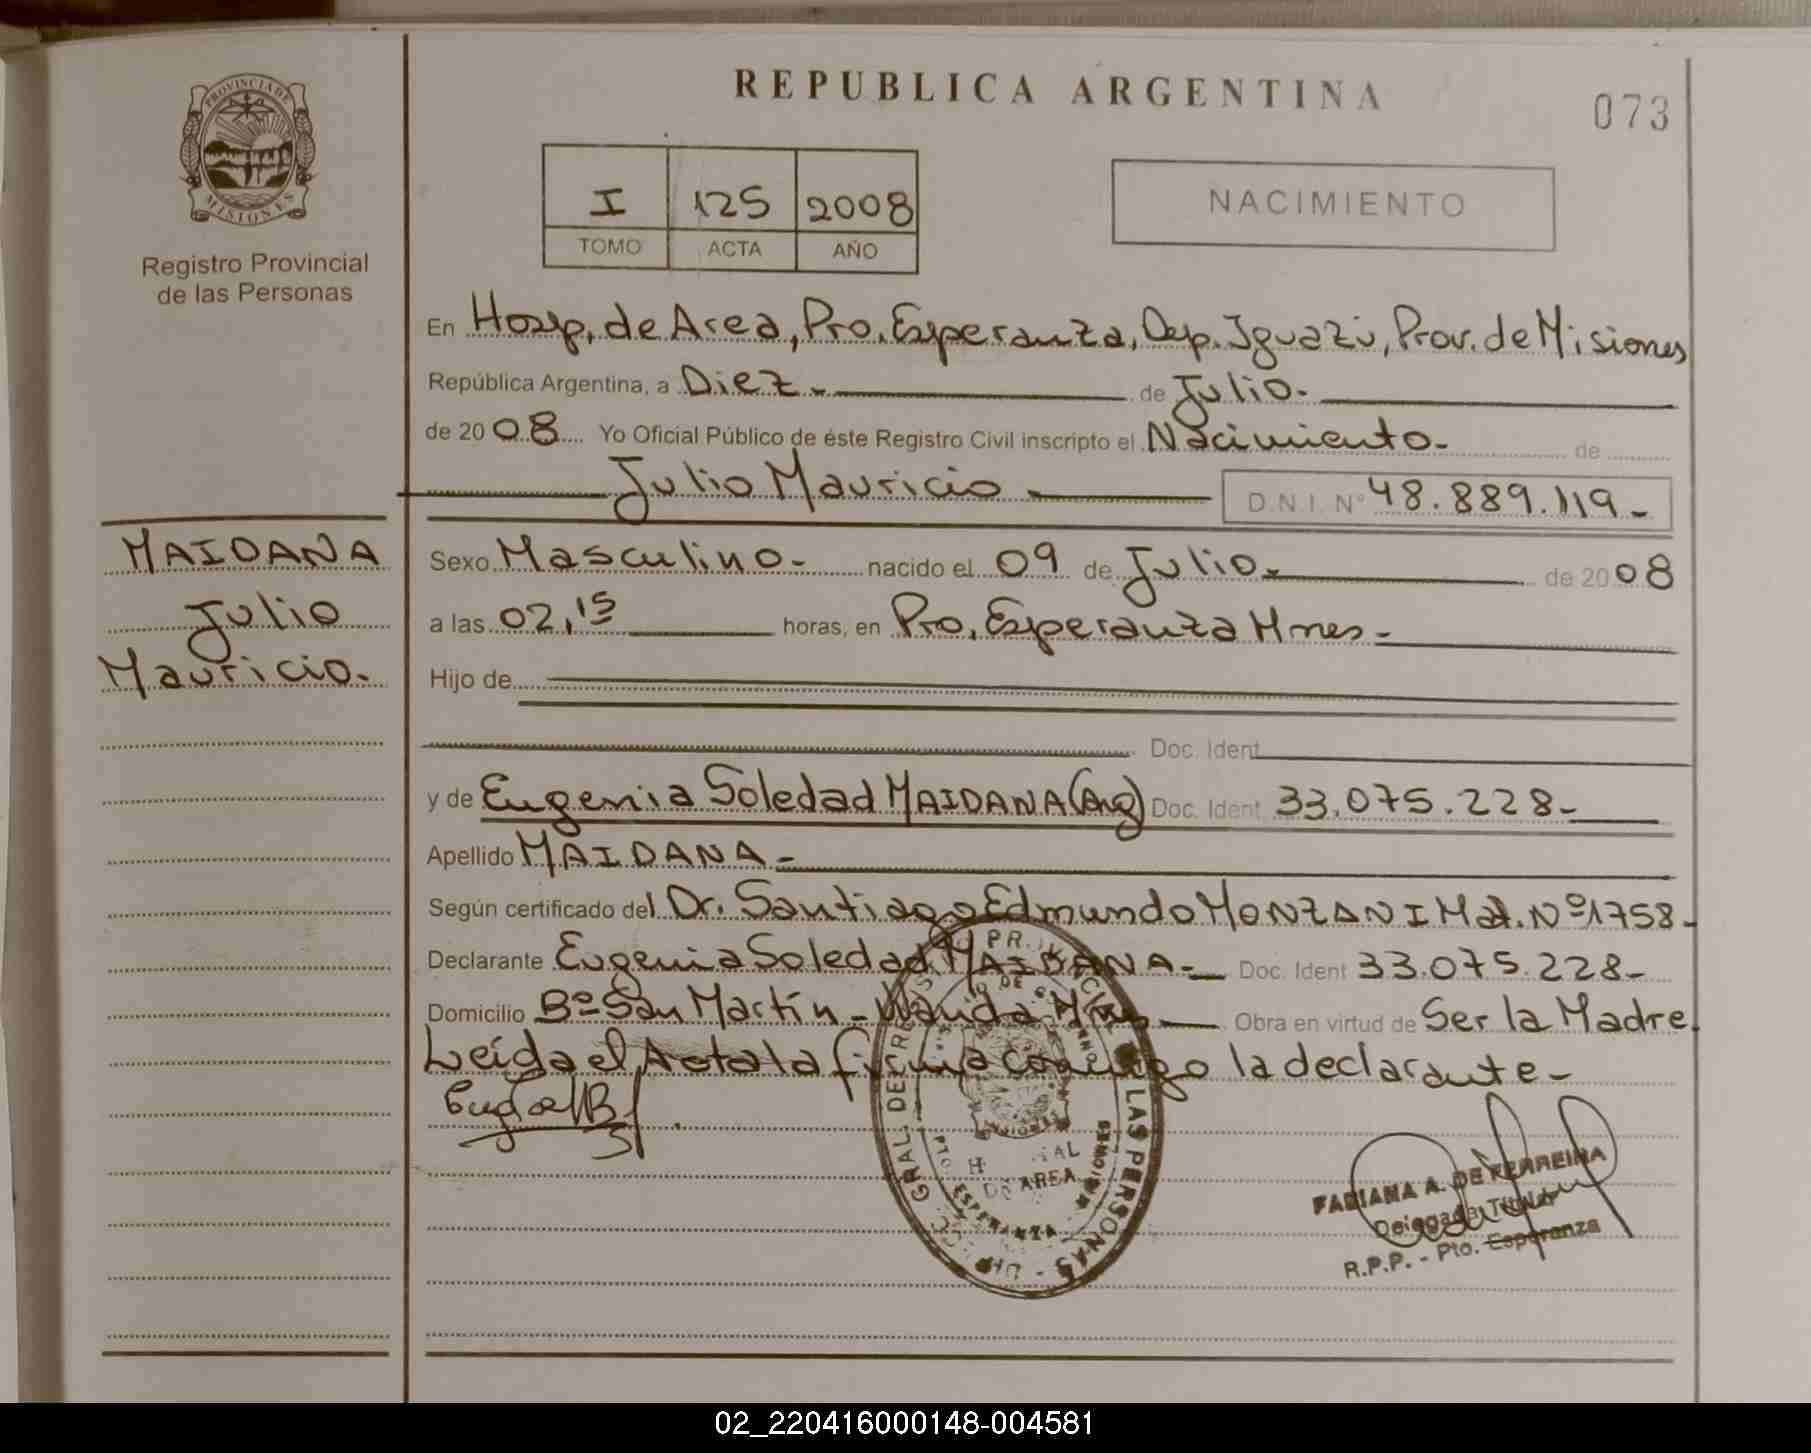 PROVINCIA DE
MISIONES
Registro Provincial
de las Personas
REPUBLICA ARGENTINA
073
I 125 2008
TOMO ACTA AÑO
NACIMIENTO
En Hosp. de Area, Pto. Esperanza, Dep. Iguazú, Prov. de Misiones
República Argentina, a Diez.- de Julio.-
de 2008 Yo Oficial Público de éste Registro Civil inscripto el Nacimiento.- de
Julio Mauricio.- D.N.I. Nº 48.889.119.-
MAIDANA
Julio
Mauricio.-
Sexo Masculino.- nacido el 09 de Julio.- de 2008
a las 02,15 horas, en Pto. Esperanza Mnes.-
Hijo de
Doc. Ident
y de Eugenia Soledad MAIDANA (Arg) Doc. Ident 33.075.228.-
Apellido MAIDANA.-
Según certificado del Dr. Santiago Edmundo MONZANI Mat. Nº 1758.-
Declarante Eugenia Soledad MAIDANA.- Doc. Ident 33.075.228.-
Domicilio Bº San Martín - Wanda Mnes Obra en virtud de Ser la Madre.
Leída el Acta la firma conmigo la declarante.-
GRAL DE LAS PERSONAS
PTO. ESPERANZA - MISIONES
AREA
FABIANA A. DE FERREIRA
Delegada Titular
R.P.P. - Pto. Esperanza
02_220416000148-004581